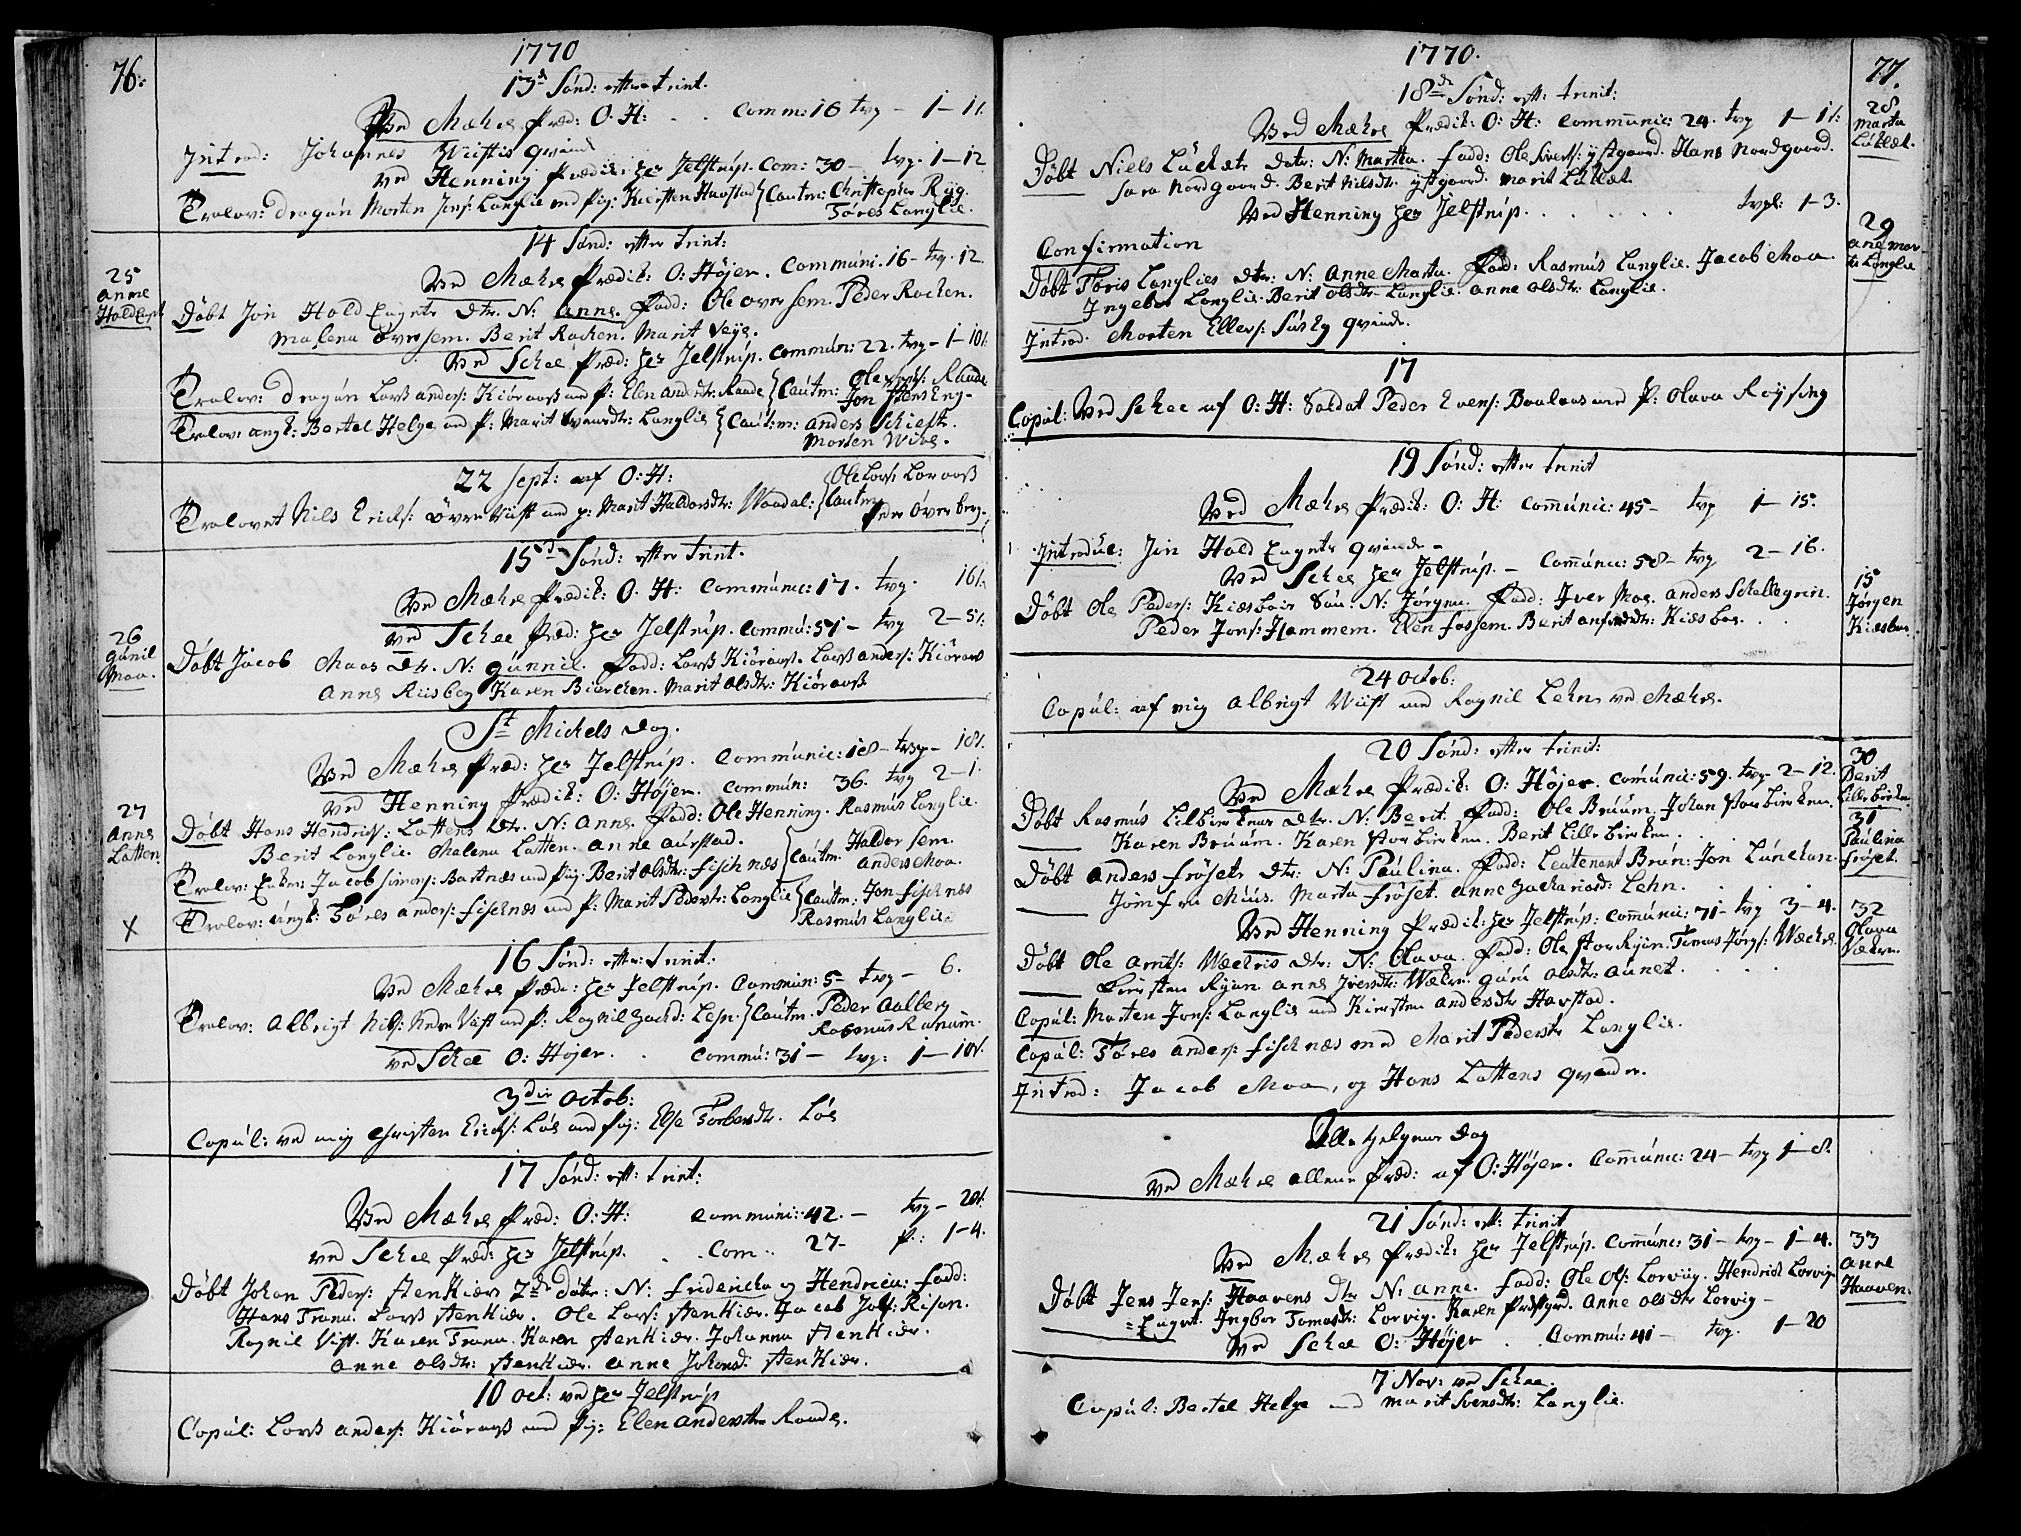 76.
1770
13d Sönd: efter trinit.
Ved Mæhre Præd: O: H: . . Comm: 16 tvg - 1-1/:
Introd: Johannes Wiistis qvinde
ved Henning Prædik: Her Jelstrup. Com: 30 - tvg. 1-12
Trolov: dragún Morten Jons: Langlie med Pig: Kiersten Havstad { Cautm: Christopher Ryg. Töres Langlie.
14 Sönd: efter trint:
25
anne
Hald Engt
Ved Mæhre Prædik: O: Höjer. Communi. 16 - tvg. 12
Döbt Jon Hald Engets dtr. N: Anne. Fadd: Ole över sem. Peder Racken.
Malena över sem. Berit Racken. Marit Veÿe.
Ved Schee Præd: Her Jelstrúp. Commún: 22. tvg - 1-10/:
Trolov: dragún Lorß anders: Kiöraas med P: Elen andersdtr: Raade { Cautm: Ole Raade Jon Steens Eng-
Trolov: ungk: Bertel Helge med P: Marit Svensdtr: Langlie { Cautm: anders Schieft. Morten Wibe.
22 Sept: af O: H:
Trolovet Nils Erichs: över Viist med p: Marit Haldorsdtr: Waadal: { Cautm Ole Lors: Loraaß Peder över berg.
15d Sönd: efter trint.
Ved Mæhre Prædik: O: H: Communic: 17. tvg. 16/:
ved Schee Præd: Her Jelstrup. Commú: 51 - tvg 2-5/:
26
gúnil
Moa.
Döbt Jacob Moas dtr. N: gúnnil. Fadd: Lorß Kiöraas. Lorß anders: Kiöraas
Anne Riisberg Karen Biercken. Marit olsdtr: Kiöraaß
St Michels dag.
Ved Mæhre Præd: Her Jelstrúp. Communic: 18 - tvg - 18/:
ved Henning Prædik: O: Höjer. Commún: 36. tvg 2-1.
27
Anne
Latten
Döbt Hans Hendrichs: Lattens dtr. N: Anne. Fadd: Ole Henning. Rasmus Langlie.
Berit Langlie. Malena Latten. anne aúrstad.
Trolov: Enkem: Jacob simens: Bartnæs med Pig: Berit olsdtr: fischnæs { Cautm. Haldor sem. anders Moa.
X
Trolov: ungk: Töres anders: fischnæs med P: Marit Pedersdtr: Langlie { Cautm: Jon fischnæs Rasmus Langlie.
16 Sönd: efter: trinit:
Ved Mæhre Præd: Her Jelstrúp. Commún: 5 - tvg - 6.
Trolov: Albrigt Nils: Nedre Viist med P: Ragnil Zachd: Lehn { Cautm. Peder Aalberg Rasmus Ranum.
ved Schee O: Höjer. . Commú: 31 - tvg: 1-10/:
3die Octob:
Copúl: ved mig Christen Erichs: Löe med Pig: Else Torbersdtr. Löe
17 Sönd: eft: trint:
Ved Mæhre Præd: O: H: communi: 42. - tvg - 20/:
ved Schee Præd: Her Jelstrúp. . . Com. 27 - P: 1-4.
Döbt Johan Peders: stenKiær 2de dötr: N: fridericha og Hendricu: fadd:
Hans Trana. Lorß stenkiær. Ole Lors: stenkiær. Jacob Jols: Risan.
Ragnil Vist. Karen Trana. Karen stenKiær. Johanna stenKiær.
Anne olsdtr: stenkiær. anne Johansd: stenKiær.
10 Oct: ved Her Jelstrúp
Copúl: Lorß anders: Kiöraaß med Pig: Elen andersdtr Raade.
77.
1770.
18de Sönd: eft: trinit:
28
Marta
Lúcket.
Ved Mæhre Prædik: O: H: Communic: 24. tvg 1-1/:
Döbt Niels Lúckets dotr: N: Martha. Fadd: Ole Sivers: ystgaard. Hans Nordgaard.
Sara Nordgaard. Berit Nilsdtr: ystgaard. Marit Lúcket.
Ved Henning Her Jelstrúp. . . . . . tvgl: 1-3.
29
ane mar
ta Langlie
Confirmation
Döbt Töris Langlies dtr: N: Anne Marta. Fadd: Rasmús Langlie. Jacob Moa.
Ingebor Langlie. Berit olsdtr. Langlie. anne olsdtr: Langlie.
Introd. Morten Ellers: Súsby qvinde.
17
Copúl: Ved Schee af O: H: Soldat Peder Evens: Baalaas med P: Olava Röysing
19 Sönd: efter trinit
Ved Mæhre Prædik: O: H: Communic: 45 - tvg 1-15.
Introduc: Jon Hald Engets qvinde -
Ved Schee Her Jelstrúp. - Communic: 58 - tvg 2-16.
15
Jörgen
Kiesboe
Döbt Ole Peders: Kiesboes Sön: N: Jörgen. Fadd: Iver Moe. anders Schellegrin.
Peder Jons: Hammem. Elen fossem. Berit anfindsdtr: Kiesboe.
24 Octob:
Copúl: af mig Albrigt Viist med Ragnil Lehn ved Mæhre.
20 Sönd: efter trinit:
30
Berit
Lillebirken
Ved Mæhre Prædik: O: Höjer. Comúnic: 59. tvg 2-12.
Döbt Rasmús Lilbirkens dtr. N: Berit. Fadd: Ole Brúúm. Johan Storbircken.
Karen Brúúm. Karen Storbircken. Berit Lille bircken.
31
Paulina
fröset.
Döbt Anders Frösets dtr: N: Paúlina. Fadd: Leútenant Brún: Jon Lúnckan.
Jomfru Múús. Marta Fröset. Anne Zachariasd: Lehn.
Ved Henning Prædik: Her Jelstrúp: Comúnic: 71 - tvg 3-4.
32
Olava
Wækre.
Döbt Ole Arnts: Wæckris dtr: N: Olava. Fadd: Ole Stor Ryan. Tomas Jörgs: Wæckre.
Kiersten Ryan. Anne Iversdtr: Wækre. gúrú olsdtr: aúnet.
Copúl: Morten Jons: Langlie med Kiersten Andersdtr Havstad.
Copúl: Töres anders: fischnæs med Marit Pedersdtr Langlie.
Introd: Jacob Moa, og Hans Lattens qvinder.
Alle Helgene dag
ved Mæhre allene Præd: af O: Höjer. Comúnic: 24 - tvg 1-8.
21 Sönd: eft: trinit
33
Anne
Haaven.
Ved Mæhre Prædik: Her Jelstrúp. Comúnic: 31 - tvg - 1-4.
Döbt Jens Jens: Haavens dtr N: Anne. Fadd: Ole Ols: Lorvig. Hendrich Lorvigs
= Enget. Ingbor Tomasdtr: Lorvig. Karen Præstgrd. Anne olsdtr Lorvig -
Ved Schee O: Höjer . . Commú: 41 - tvg. 1-20
7 Nov: ved Schee.
Copúl: Bertel Helge med Marit Svensdtr: Langlie.